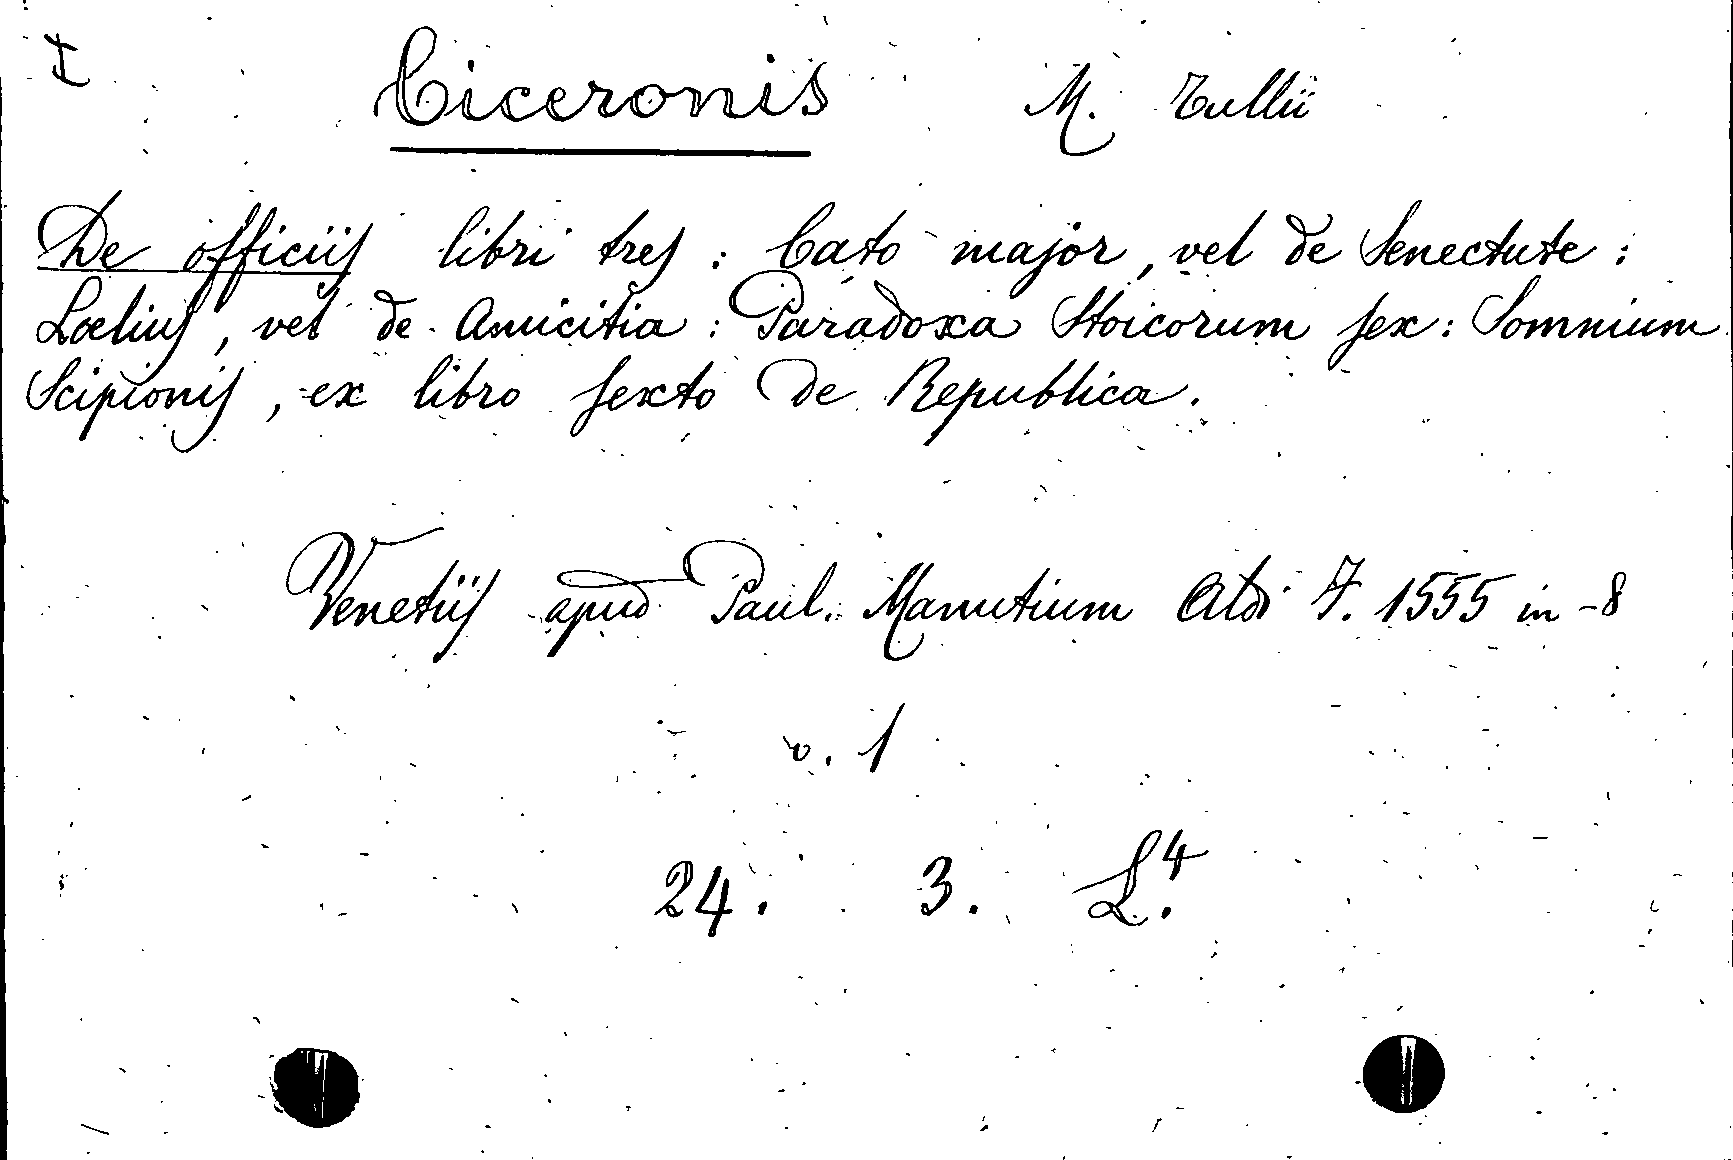 I Ciceronis M. Tullii
De officiis libri tres : Cato major, vel de Senectute :
Lœlius, vel de Amicitia : Paradoxa Stoicorum sex : Somnium
Scipionis, ex libro sexto de Republica.
Venetiis apud Paul. Manutium Aldi F. 1555 in-8
v. 1
24. 3. L.4